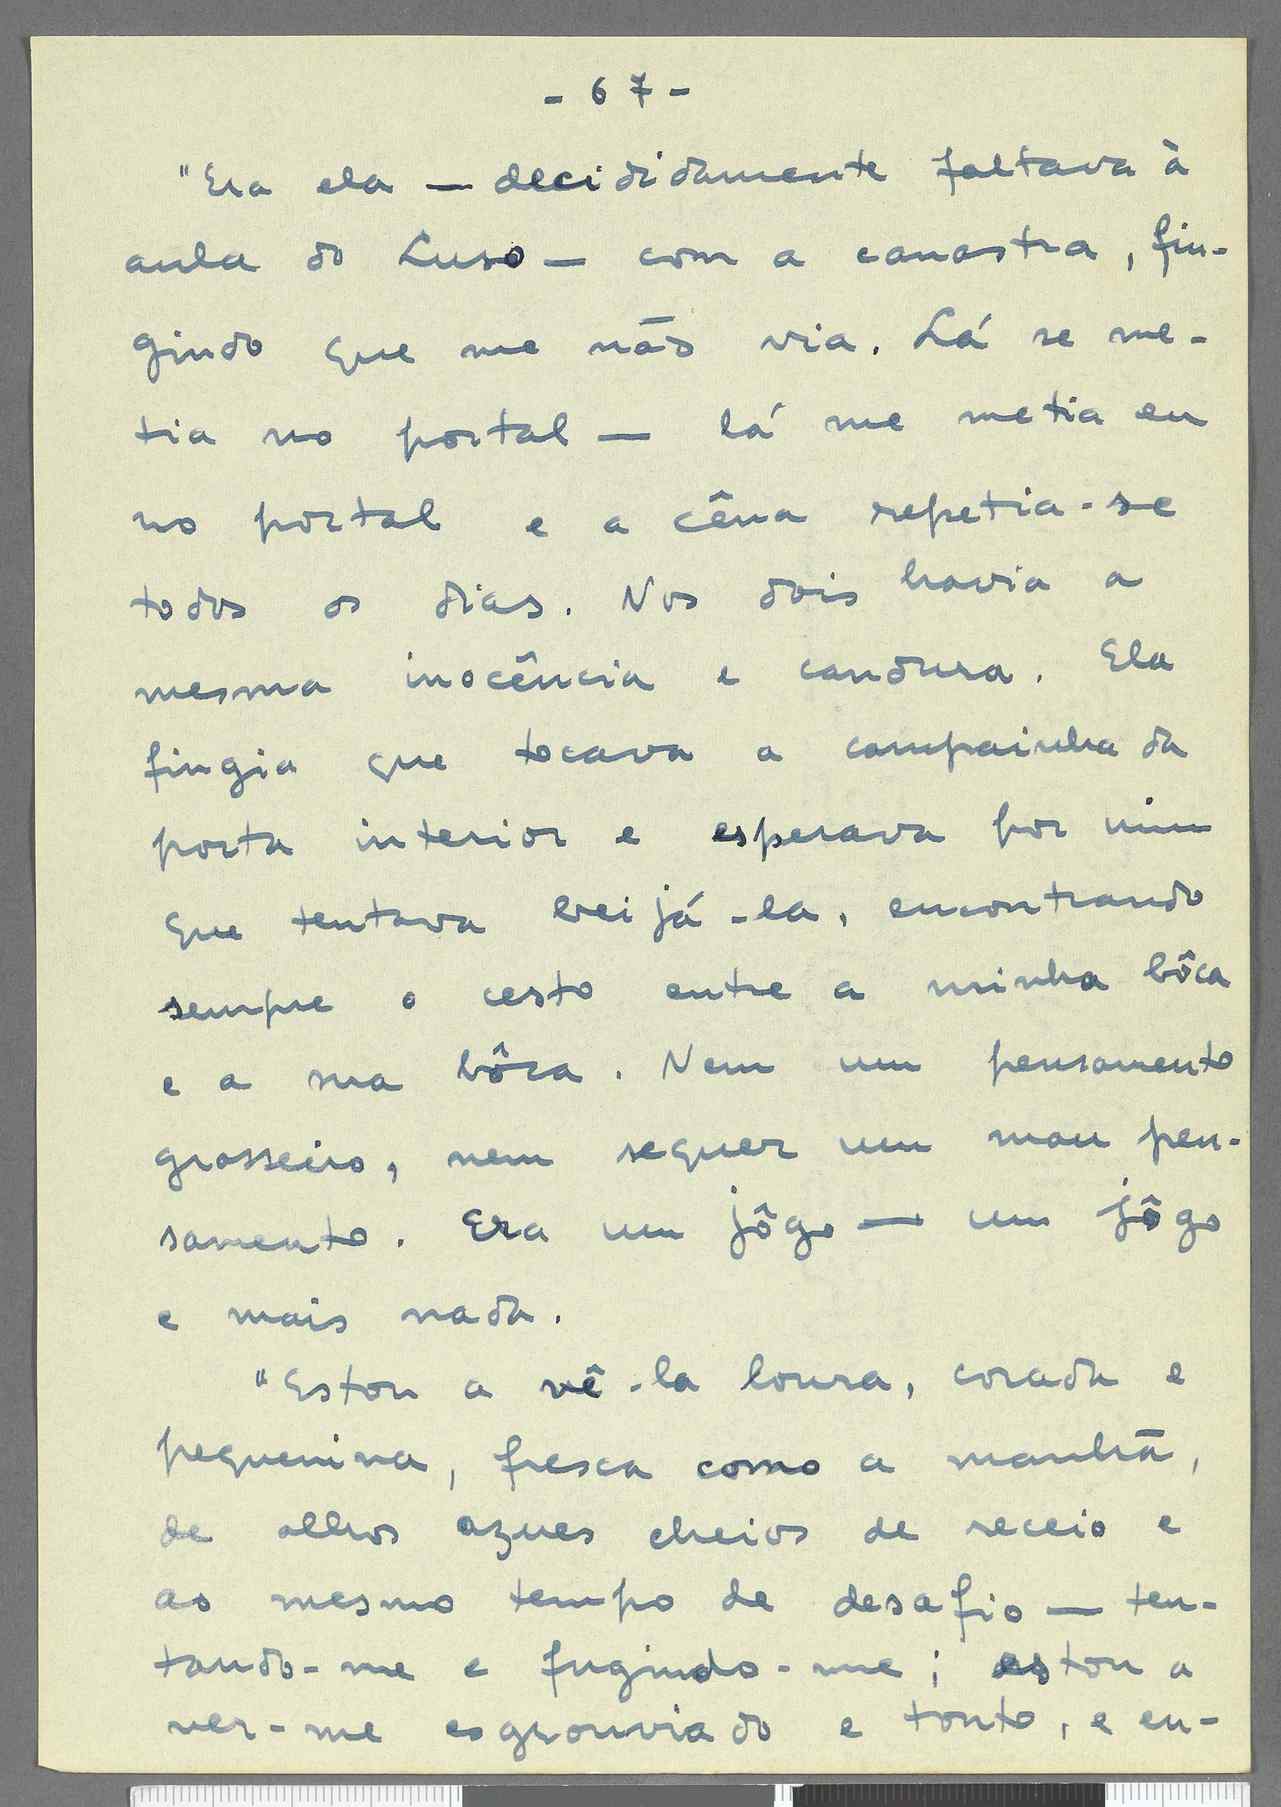 - 67 -
"Era ela — decididamente faltava à
aula do Luso — com a canastra, fin-
gindo que me não via. Lá se me-
tia no portal — lá me metia eu
no portal e a cêna repetia-se
todos os dias. Nos dois havia a
mesma inocência e candura. Ela
fingia que tocava a campainha da
porta interior e esperava por mim
que tentava beijá-la, encontrando
sempre o cesto entre a minha bôca
e a sua bôca. Nem um pensamento
grosseiro, nem sequer um mau pen-
samento. Era um jôgo — um jôgo
e mais nada.
"Estou a vê-la loura, corada e
pequenina, fresca como a manhã,
de olhos azues cheios de receio e
ao mesmo tempo de desafio — ten-
tando-me e fugindo-me; estou a
ver-me esgrouviado e tonto, e en-